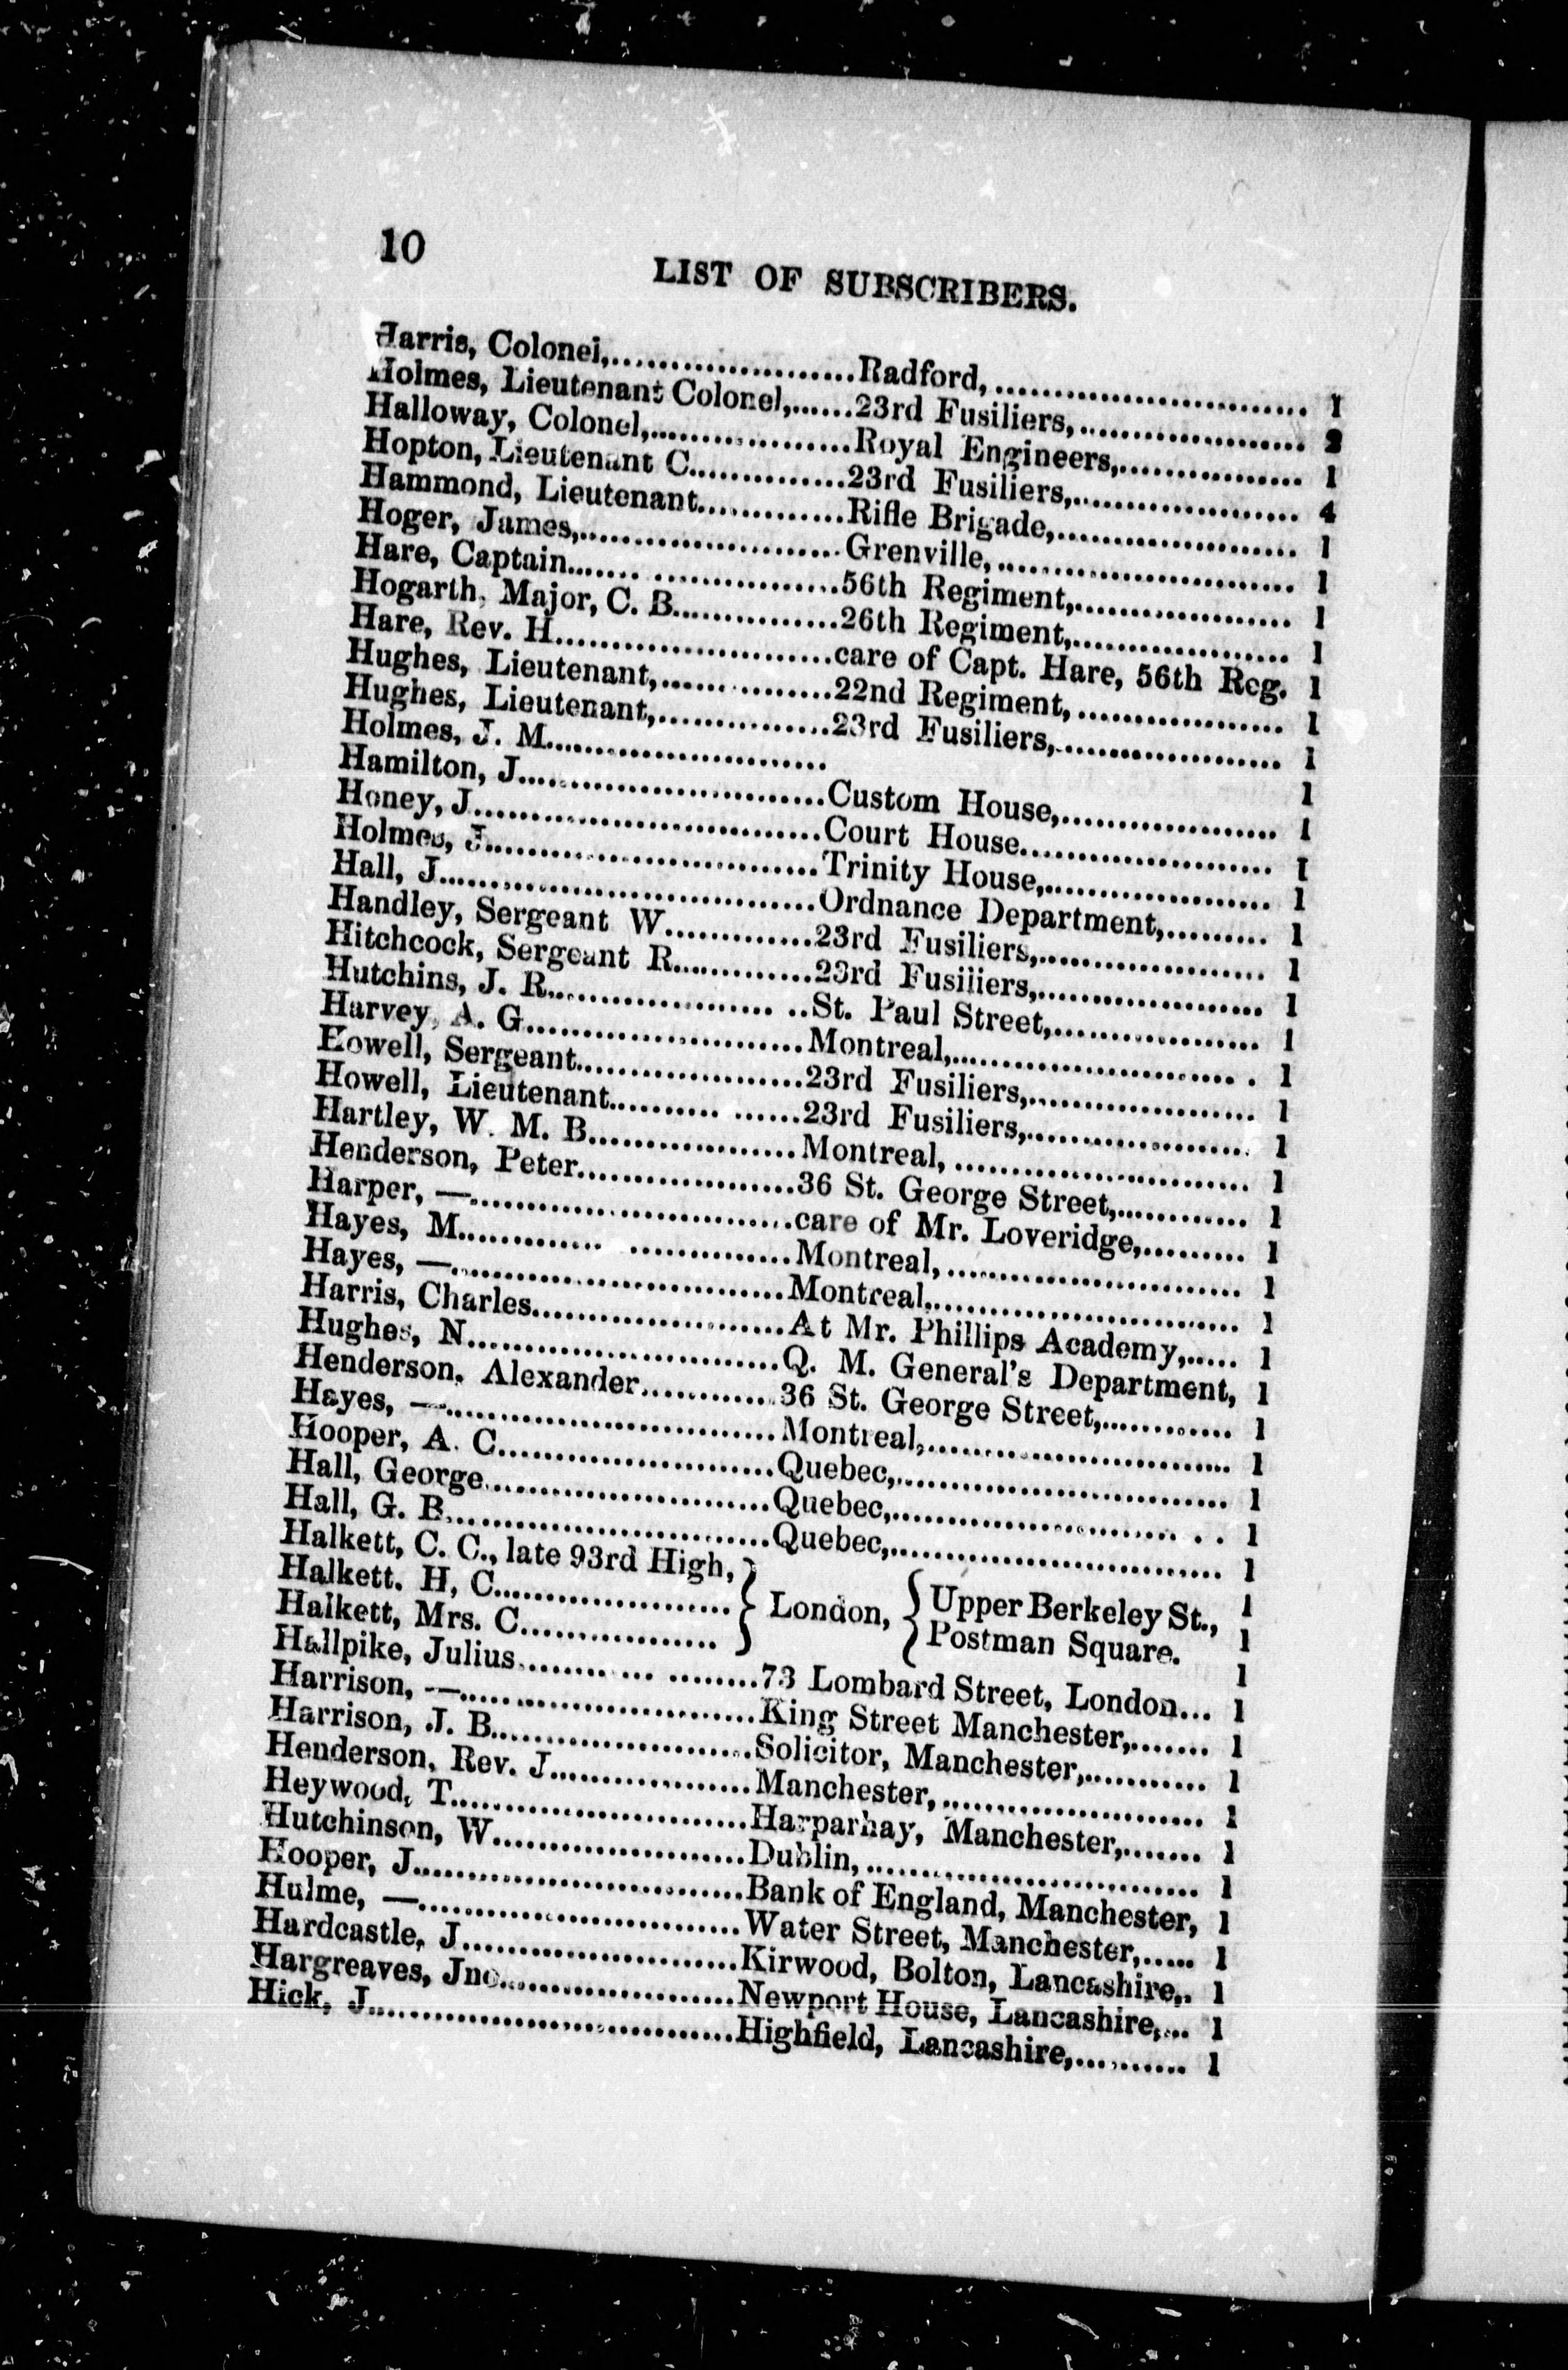 10
LIST OF SUBSCRIBERS.
Harris, Colonel,......................Radford,............................ 1
Holmes, Lieutenant Colonel,......23rd Fusiliers,.................... 2
Halloway, Colonel,..................Royal Engineers,................ 1
Hopton, Lieutenant C..............23rd Fusiliers,.................... 4
Hammond, Lieutenant.............Rifle Brigade,...................... 1
Hoger, James,........................Grenville,........................... 1
Hare, Captain.........................56th Regiment,.................... 1
Hogarth, Major, C. B...............26th Regiment,.................... 1
Hare, Rev. H.........................care of Capt. Hare, 56th Reg. 1
Hughes, Lieutenant,................22nd Regiment,................... 1
Hughes, Lieutenant,................23rd Fusiliers,.................... 1
Holmes, J. M......................... 1
Hamilton, J............................Custom House,.................... 1
Honey, J...............................Court House....................... 1
Holmes, J..............................Trinity House,.................... 1
Hall, J.................................Ordnance Department,......... 1
Handley, Sergeant W.............23rd Fusiliers,.................... 1
Hitchcock, Sergeant R............23rd Fusiliers,.................... 1
Hutchins, J. R.................... ..St. Paul Street,.................. 1
Harvey, A. G.........................Montreal,.......................... . 1
Howell, Sergeant....................23rd Fusiliers,.................... 1
Howell, Lieutenant.......... ......23rd Fusiliers,.................... 1
Hartley, W. M. B..................Montreal,........................... 1
Henderson, Peter...................36 St. George Street,............ 1
Harper, —............................care of Mr. Loveridge,......... 1
Hayes, M............. ..............Montreal,........................... 1
Hayes, —..............................Montreal,........................... 1
Harris, Charles.......................At Mr. Phillips Academy,..... 1
Hughes, N............................Q. M. General's Department, 1
Henderson, Alexander............36 St. George Street,............ 1
Hayes, —..............................Montreal,........................... 1
Hooper, A. C.........................Quebec,............................. 1
Hall, George..........................Quebec,......................... . . 1
Hall, G. B.............................Quebec,............................. 1
Halkett, C. C., late 93rd High, 1
Halkett. H, C..................... } London, { Upper Berkeley St., 1
Halkett, Mrs. C.................. Postman Square. 1
Hallpike, Julius........... ........73 Lombard Street, London... 1
Harrison, —..........................King Street Manchester,....... 1
Harrison, J. B.......................Solicitor, Manchester,........... 1
Henderson, Rev. J..................Manchester,........................ 1
Heywood, T..........................Harparhay, Manchester,....... 1
Hutchinson, W......................Dublin,.............................. 1
Hooper, J.............................Bank of England, Manchester, 1
Hulme, —.............................Water Street, Manchester,..... 1
Hardcastle, J........................Kirwood, Bolton, Lancashire,. 1
Hargreaves, Jno.....................Newport House, Lancashire,... 1
Hick, J................................Highfield, Lancashire,.......... 1